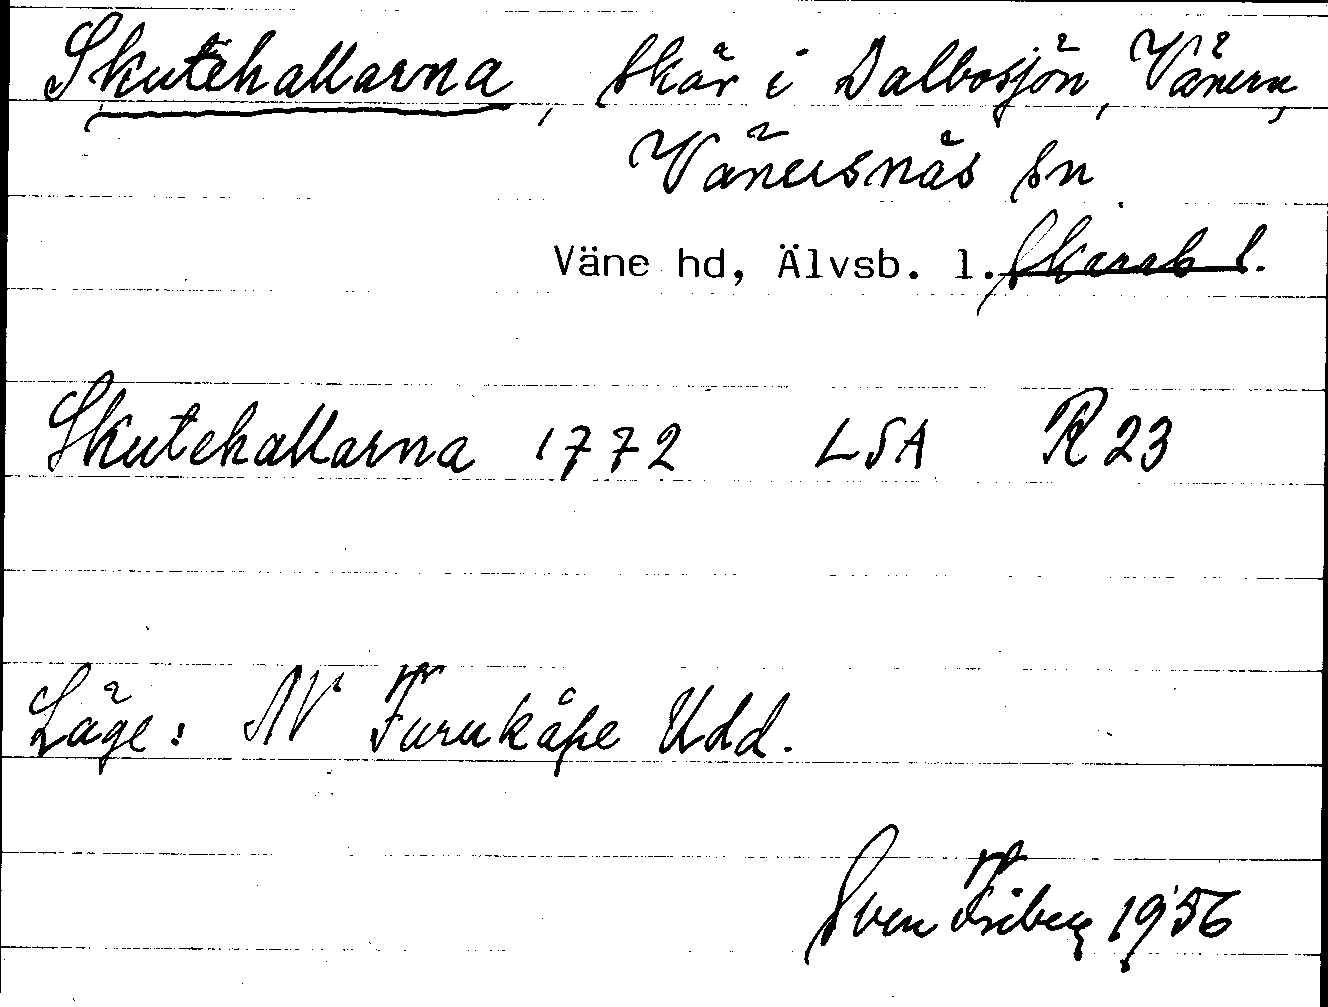 Skutehallarna, skär i Dalbosjön, Vänern,
Vänersnäs sn
Väne hd, Älvsb. l. Skarab l.
Skutehallarna 1772 LSA R 23
Läge: NV Furukåpe Udd.
Sven Friberg 1956